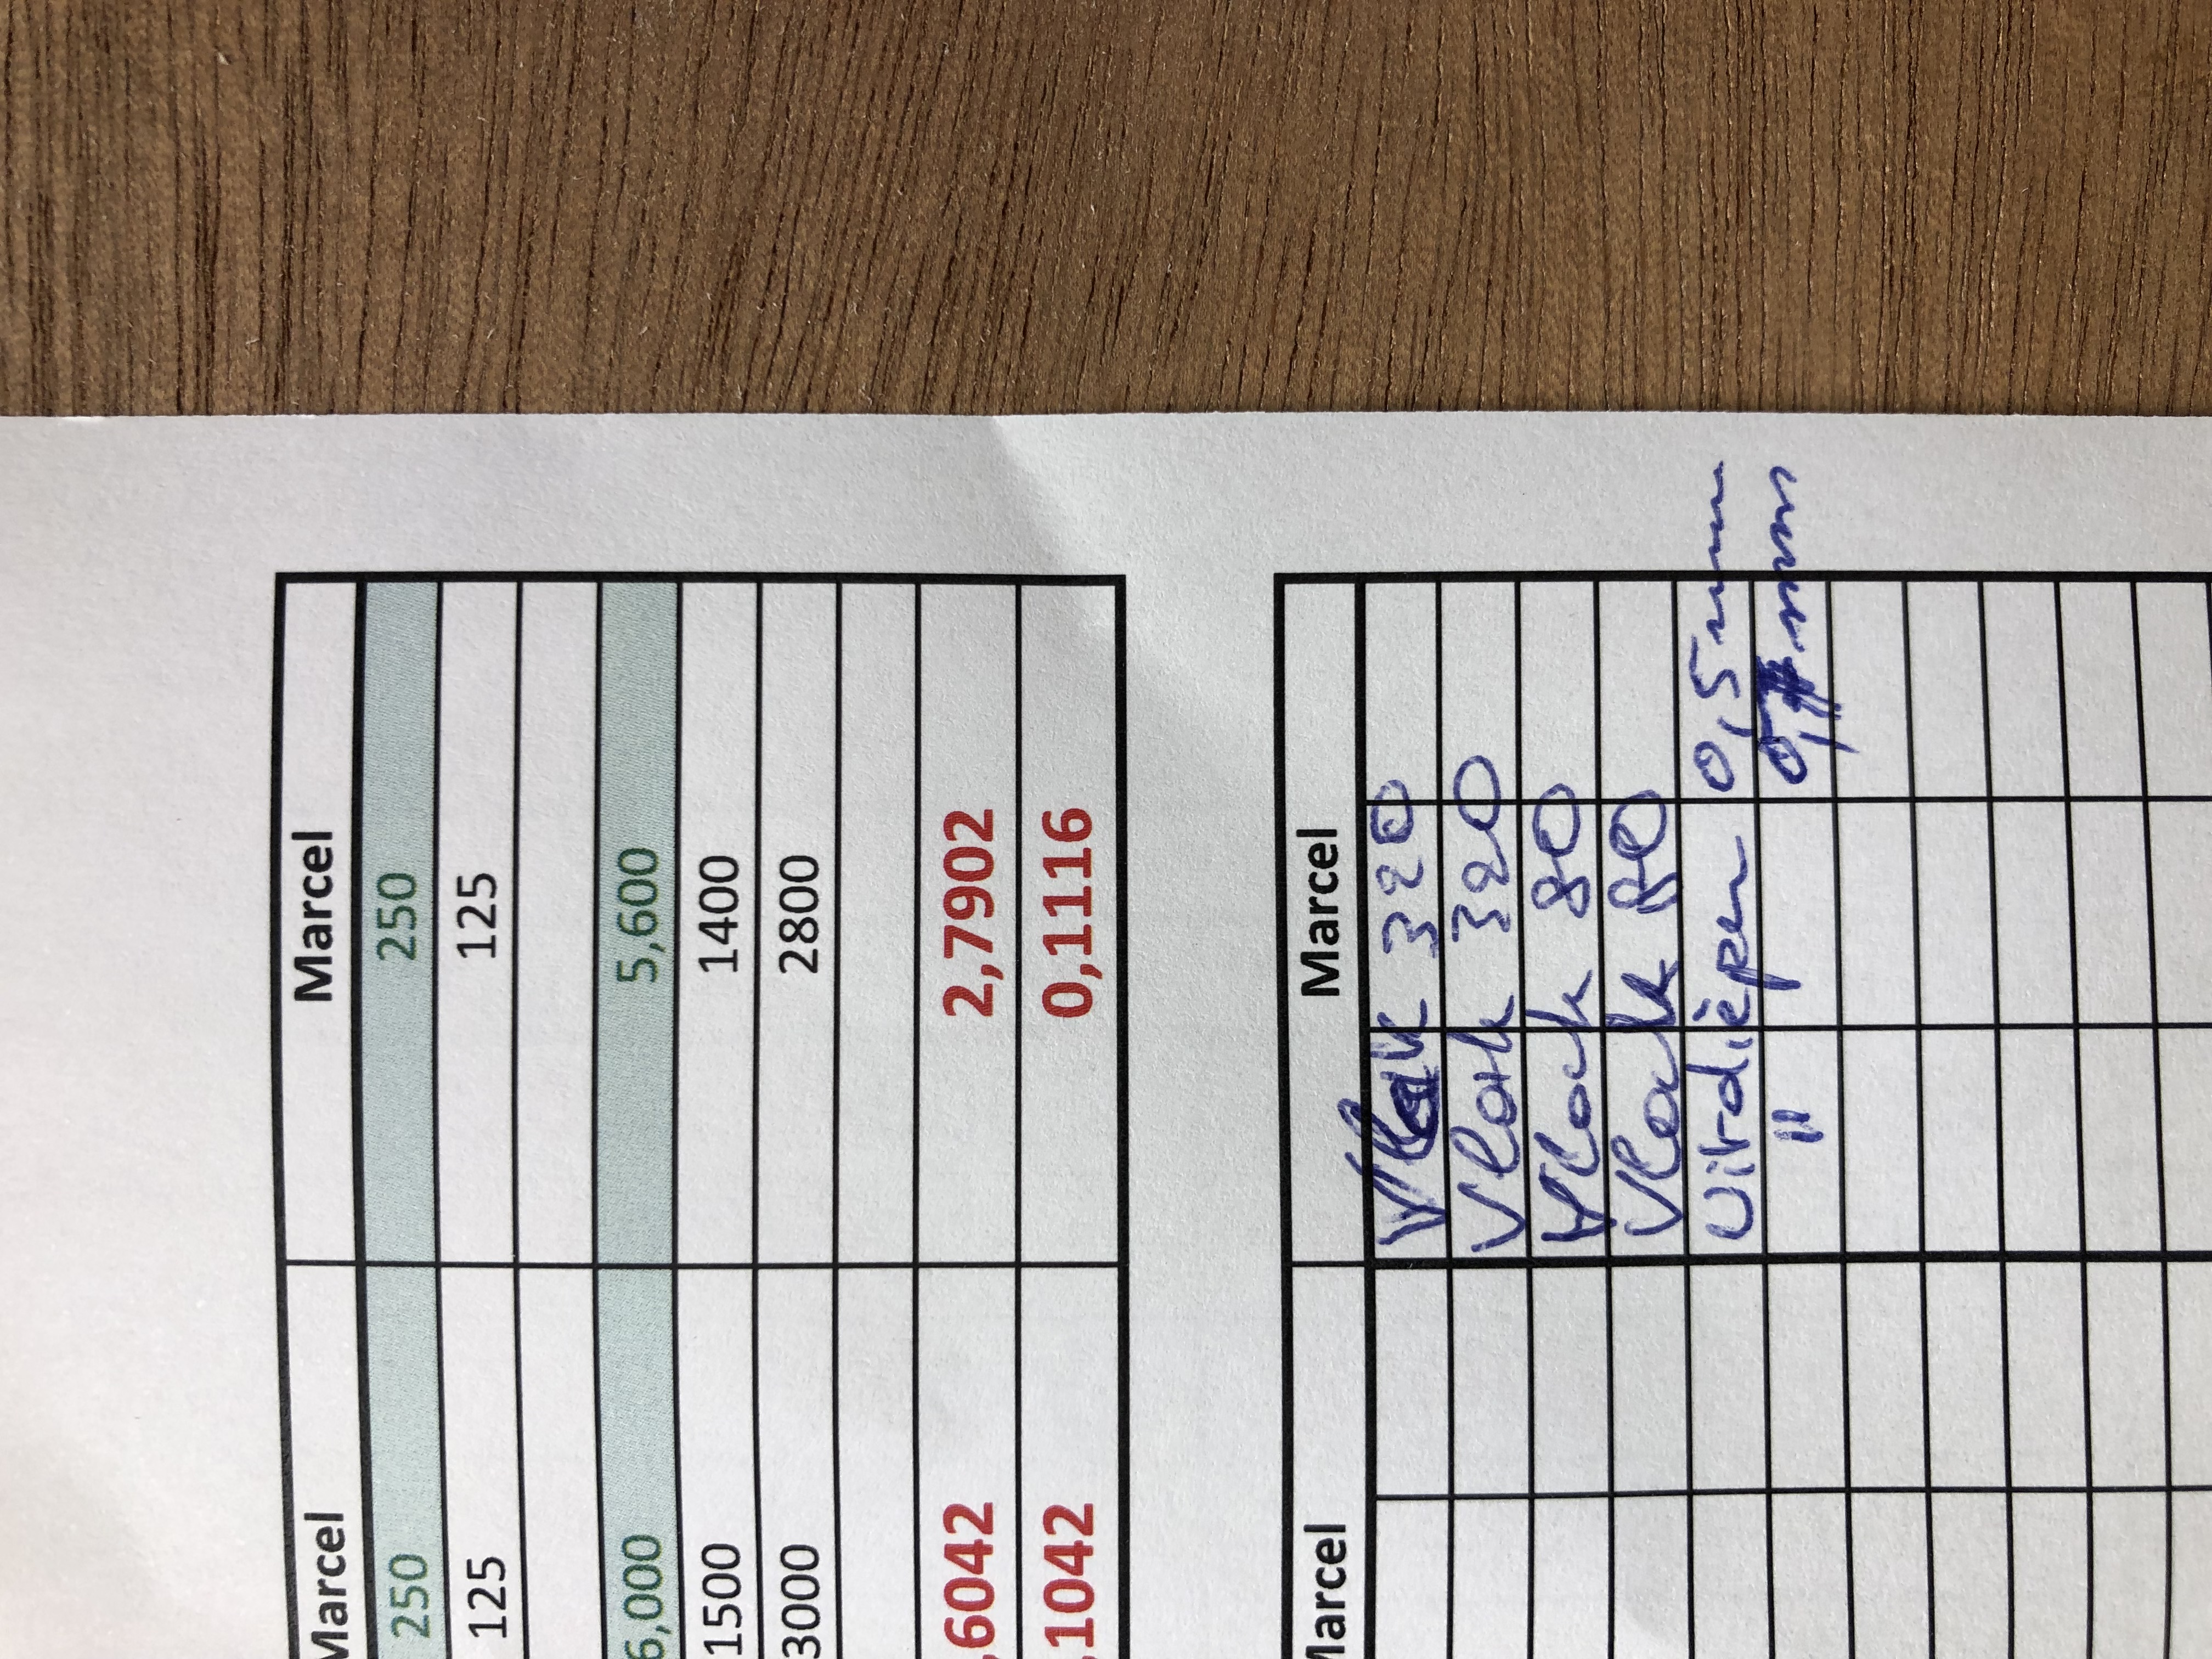 Marcel Marcel
250 250
125 125
6,000 5,600
1500 1400
3000 2800
,6042 2,7902
,1042 0,1116
Marcel Marcel
Vlak 320
Vlak 320
Vlak 80
Vlak 80
Uitdiepen 0,5mm
" mm